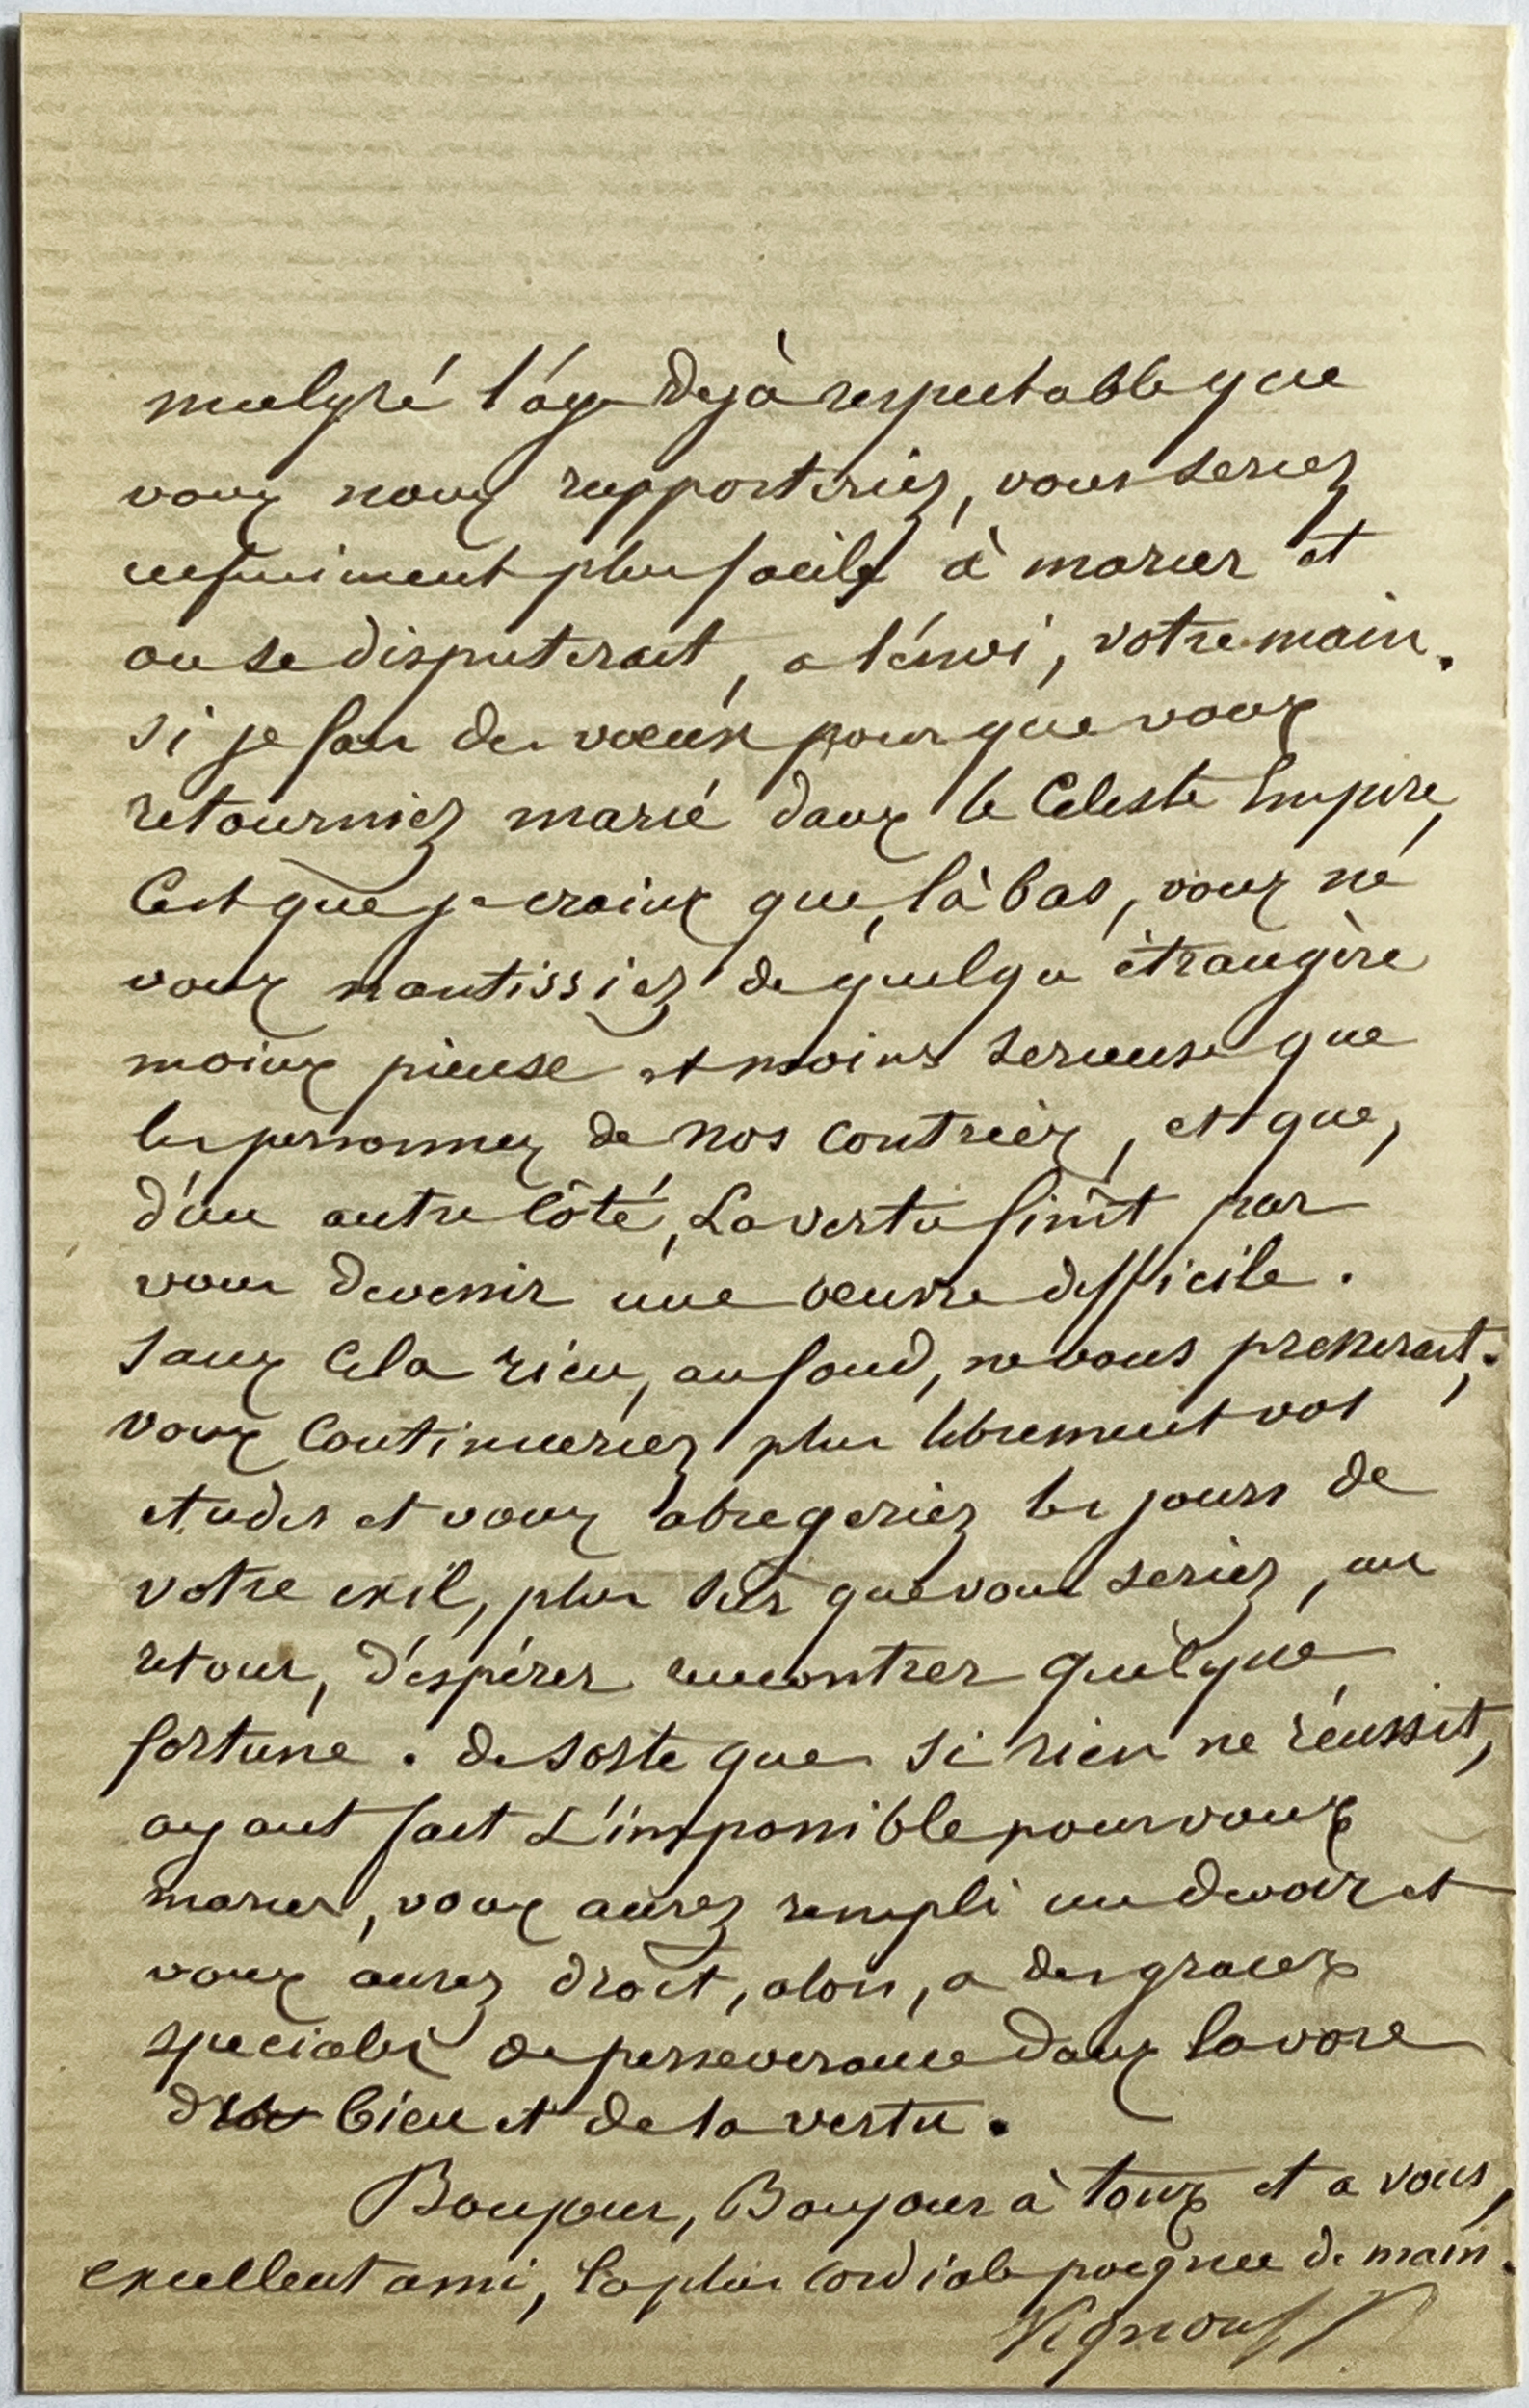 malgré l'âge dejà respectable que
vous nous rapporteriez, vous seriez
infiniment plus facile à marier et
on se disputerait, a l'envi, votre main.
si je fais des voeux pour que vous
retourniez marié dans le Celeste Empire,
C'est que je crains que, là bas, vous ne
vous nantissiez de quelque étrangère
moins pieuse et moins serieuse que
les personnes de nos contrées, et que,
d'un autre côté, La vertu finît par
vous devenir une oeuvre difficile.
Sans Cela rien, au fond, ne vous presserait;
vous Continueriez plus librement vos
etudes et vous abregeriez les jours de
votre exil, plus sûr que vous seriez, au
retour, d'espérer rencontrer quelque
fortune. de sorte que si rien ne réussit,
ayant fait L'impossible pour vous
marier, vous aurez rempli un devoir et
vous aurez droit, alors, a des graces
speciales de perseverance dans la voie
du bien et de la vertu.
Bonjour, Bonjour à tous et a vous,
excellent ami, la plus cordiale poignee de main.